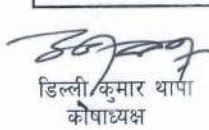 डिल्ली कुमार थापा
कोषाध्यक्ष